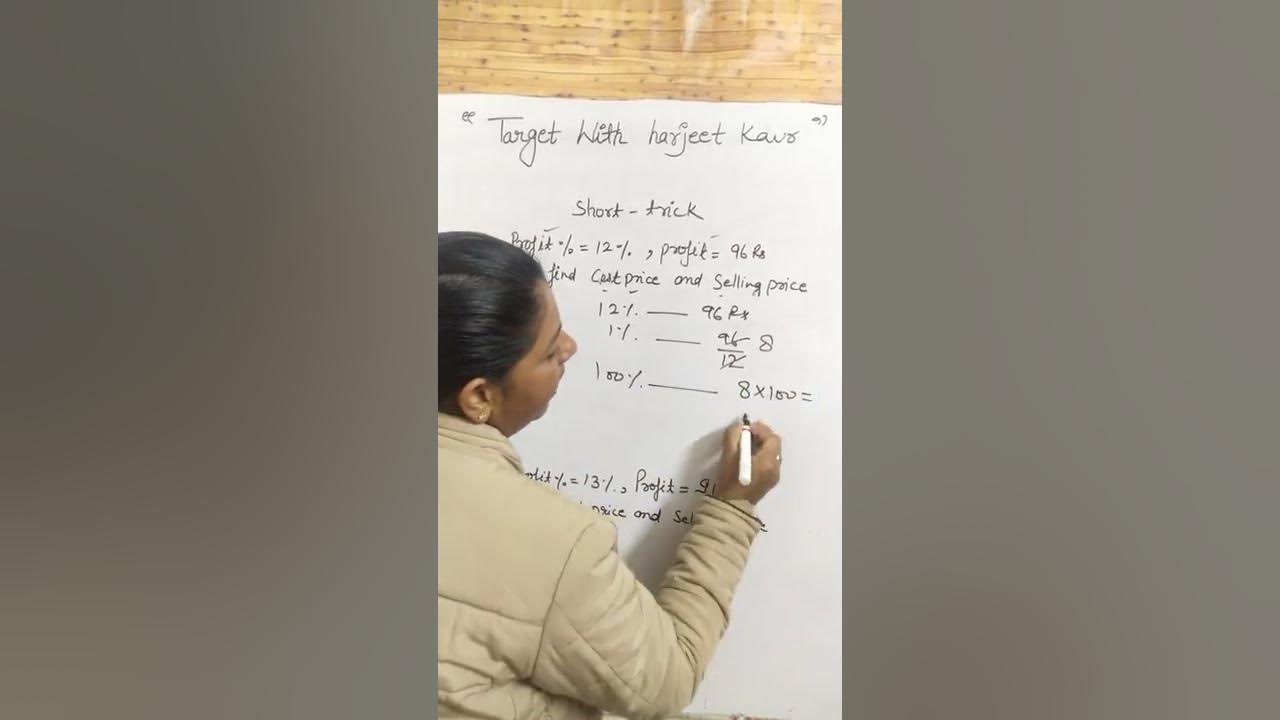 " Target With harjeet Kaur "
Short - trick
Profit % = 12%, profit = 96 Rs
find Cost price and Selling price
12% — 96 Rs
1% — 96/12 8
100% — 8×100=
% = 13%, Profit =
price and